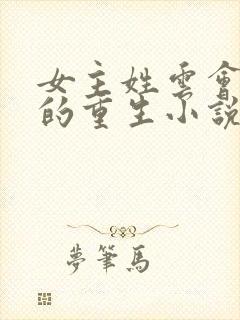 女主姓雲會
的重生小說
夢筆馬